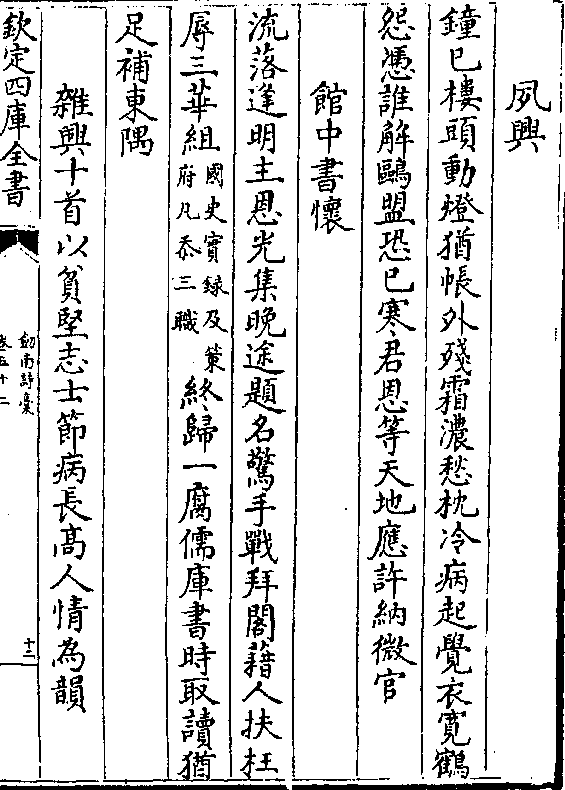 夙興
鐘已樓頭動燈猶帳外殘霜濃愁枕冷病起覺衣寛鶴
怨憑誰解鷗盟恐已寒君恩等天地應許納微官
館中書懷
流落逢明主恩光集晚途題名驚手戰拜閣藉人扶枉
辱三華組國史實録及策府凡忝三職終歸一腐儒庫書時取讀猶
足補東隅
雜興十首以貧堅志士節病長髙人情為韻
欽定四庫全書
劍南詩稾
卷五十二
十三